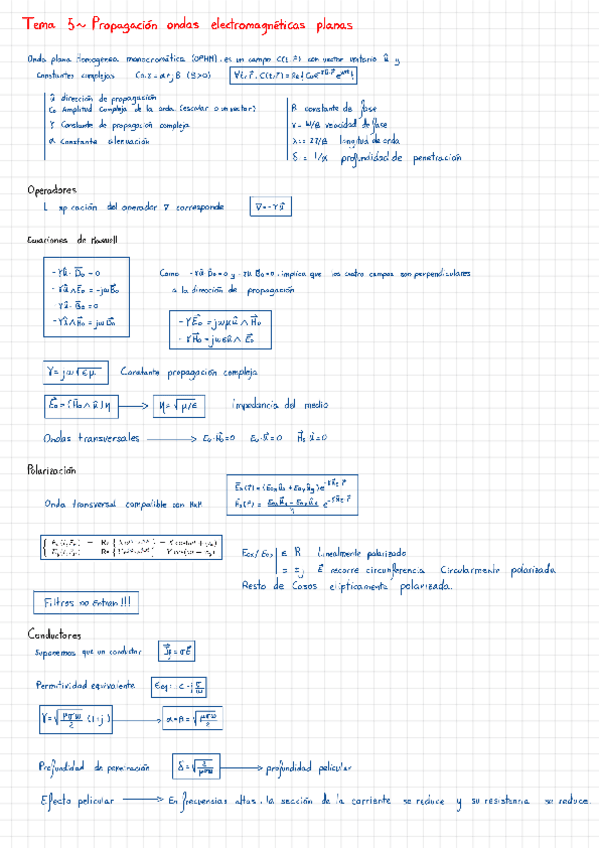 Tema 5~ Propagación ondas electromagnéticas planas
Onda plana homogenea monocromática (OPHM), es un campo C(t,r⃗) con vector unitario û y
Constantes complejas Co, γ = α+jβ (γ>0) ∀t, r⃗, C(t,r⃗) = Re{
û dirección de propagación
Co Amplitud Compleja de la onda (escalar o un vector)
γ Constante de propagación compleja
α constante atenuación
β constante de fase
v = ω/β velocidad de fase
λ = 2π/β longitud de onda
δ = 1/α profundidad de penetración
Operadores
del operador ∇ corresponde ∇=-γû
Ecuaciones de Maxwell
-γû·D⃗o = 0
-γû∧E⃗o = -jωB⃗o
-γû·B⃗o = 0
-γû∧H⃗o = jωD⃗o
Como -γû·D⃗o=0 y -γû·B⃗o=0, implica que los cuatro campos son perpendiculares
a la dirección de propagación
-γE⃗o = jωμû∧H⃗o
-γH⃗o = jωεû∧E⃗o
γ = jω√εμ Constante propagación compleja
E⃗o = (H⃗o∧û)η → η = √μ/ε impedancia del medio
Ondas transversales → Eo·Ho=0 Eo·û=0 Ho·û=0
Polarización
Onda transversal compatible con
Eox/Eoy ∈ R Linealmente polarizado
= ±j E⃗ recorre circunferencia Circularmente polarizada
Resto de Casos elípticamente polarizada.
Filtros no Entran!!!
Conductores
Suponemos que un conductor J⃗=σE⃗
Permitividad equivalente εeq = ε-jσ/ω
γ=√μσω/2 (1+j) → α=β=√μσω/2
Profundidad de penetración δ=√2/μσω → profundidad pelicular
Efecto pelicular → En frecuencias altas, la sección de la corriente se reduce y su resistencia se reduce.